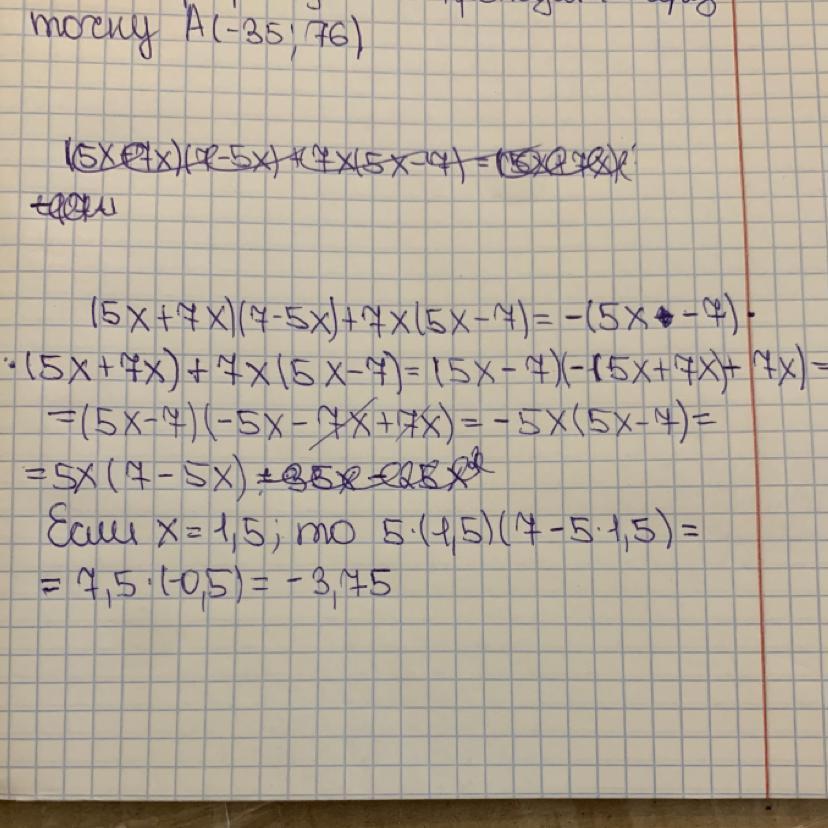 точку A(-35; 76)
(5x+7x)(7-5x)+7x(5x-7)=
(5x+7x)(7-5x)+7x(5x-7)=-(5x-7)·
·(5x+7x)+7x(5x-7)=(5x-7)(-(5x+7x)+7x)=
=(5x-7)(-5x-7x+7x)=-5x(5x-7)=
=5x(7-5x)
Если x=1,5; то 5·(1,5)(7-5·1,5)=
=7,5·(-0,5)=-3,75